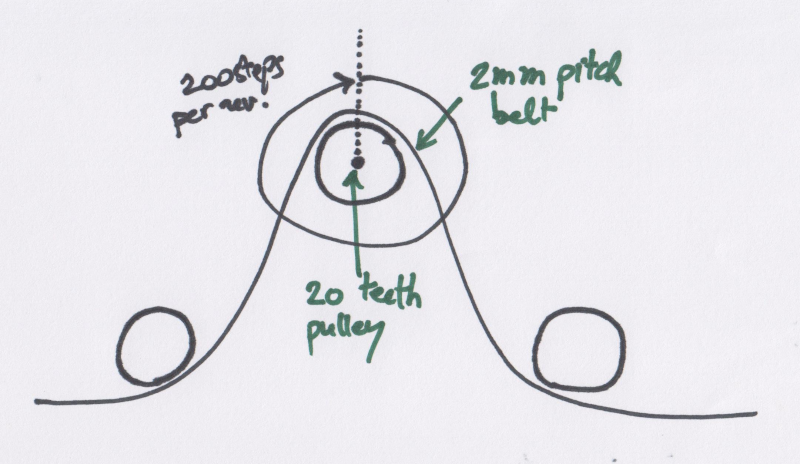 200steps
per rev.
2mm pitch
belt
20 teeth
pulley